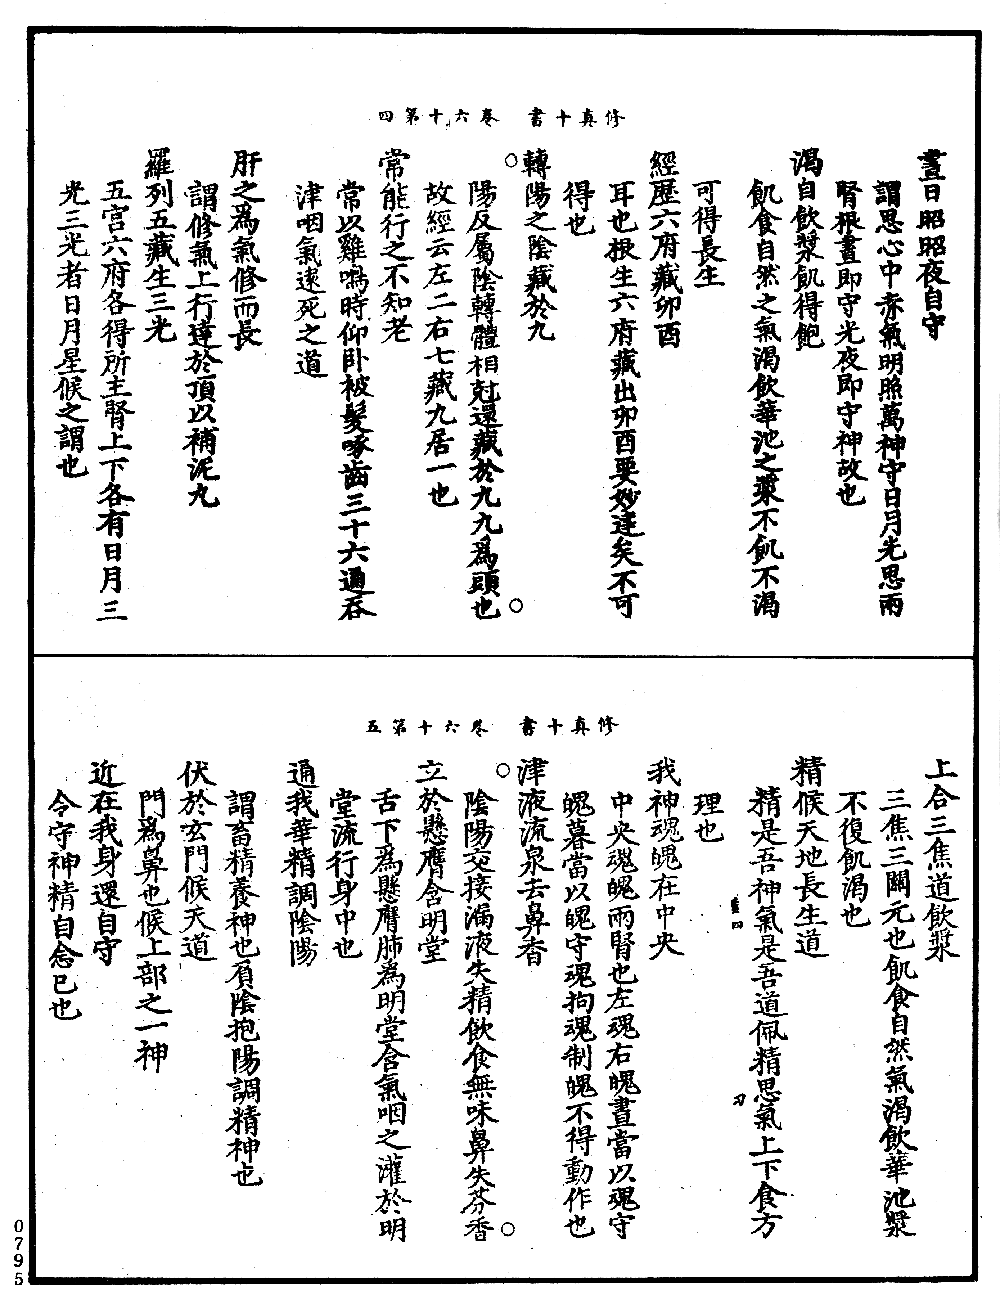 修真十書　卷六十第四
晝日昭昭夜自守
謂思心中赤氣明照萬神守日月光思兩
腎根晝即守光夜即守神故也
渴自飲漿飢得飽
飢食自然之氣渴飲華池之漿不飢不渴
可得長生
經歷六府藏卯酉
耳也根生六府藏出卯酉要妙達矣不可
得也
轉陽之陰藏於九
○陽反屬陰轉體相尅還藏於九九爲頭也○
故經云左二右七藏九居一也
常能行之不知老
常以雞鳴時仰卧被髮啄齒三十六通吞
津咽氣遠死之道
肝之爲氣修而長
謂修氣上行達於頂以補泥丸
羅列五藏生三光
五宮六府各得所主腎上下各有日月三
光三光者日月星候之謂也
修真十書　卷六十第五
上合三焦道飲漿
三焦三關元也飢食自然氣渴飲華池漿
不復飢渴也
精候天地長生道
精是吾神氣是吾道佩精思氣上下食方
理也
我神魂魄在中央
中央魂魄兩腎也左魂右魄晝當以魂守
魄暮當以魄守魂拘魂制魄不得動作也
津液流泉去鼻香
○陰陽交接漏液失精飲食無味鼻失芬香○
立於懸膺含明堂
舌下爲懸膺肺爲明堂含氣咽之灌於明
堂流行身中也
通我華精調陰陽
謂畜精養神也負陰抱陽調精神也
伏於玄門候天道
門爲鼻也候上部之一神
近在我身還自守
令守神精自念己也
0795